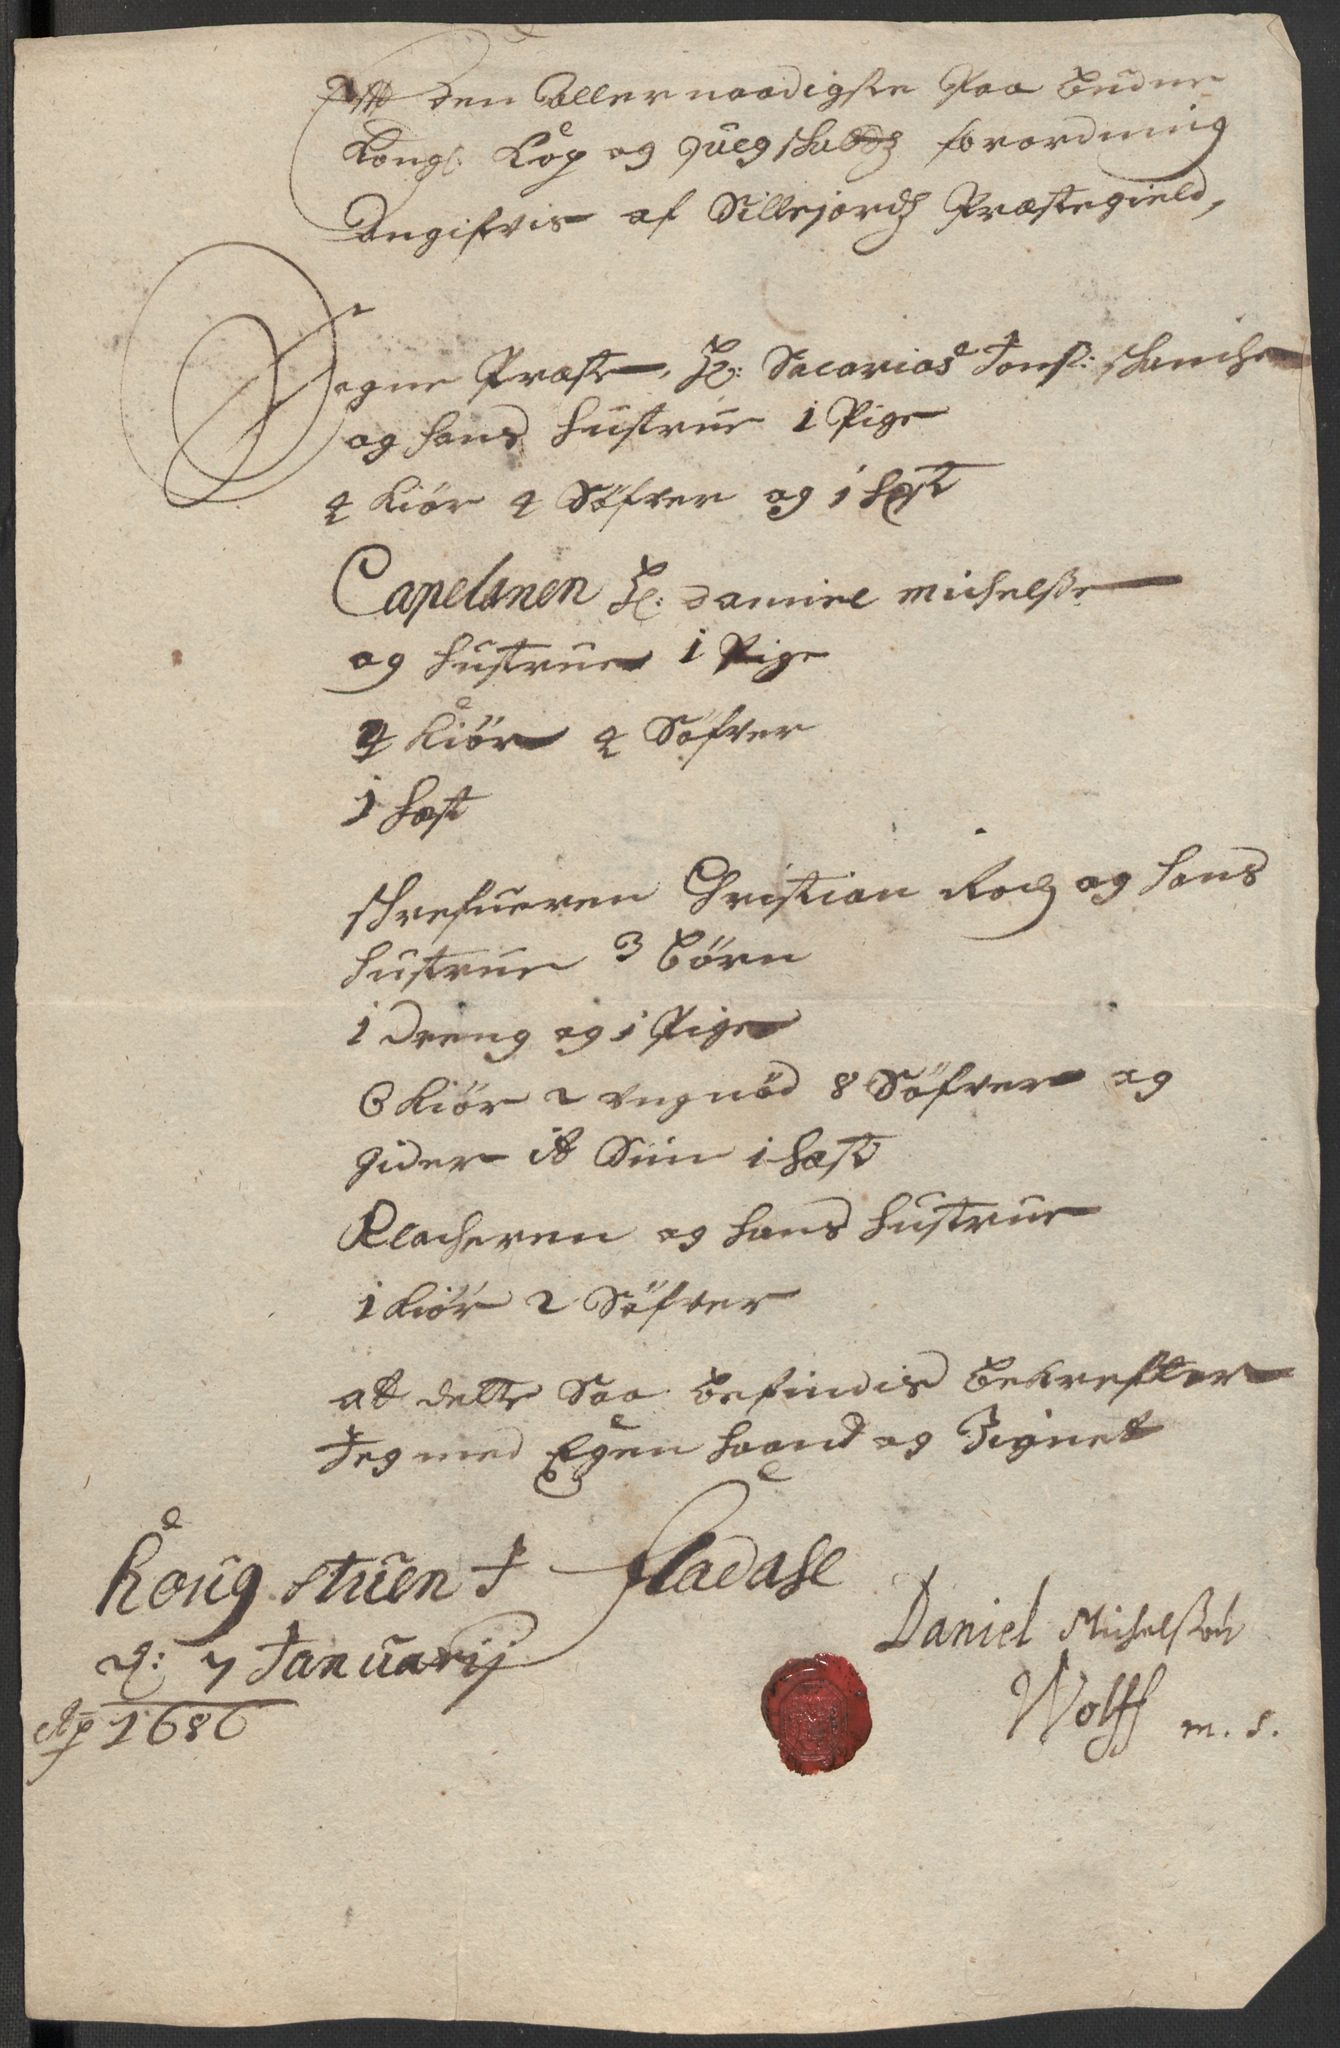 Eftt den Aller naadigste Paa budne
Kongl: Kop og qùeg skatz forordning
Angifvis af Sillejordz Præstegield,
Sogne Præst, Hr: Sacarias Jonß: skanche
og hans hustrue 1 Pige
4 kiør 4 Søfver og 1 hest
Capelanen Hr: Daniel Michelße
og hustrue 1 Pige
4 kiør 4 Søfver
1 hæst
skrefueren Christian Rod og hans
hustrue 3 børn
1 dreng og 1 Pige
6 kiør 2 ungnød 8 Søfver og
gider it Suin 1 hæst
Klocheren og hans hustrue
1 kiør 2 Søfver
att dette Saa befindis bekrefter
Jeg med Egen haand og Zignet
Kong stuen J fladase
d: 7 Januarij
Ao 1686
Daniel Michelßøn
Wolff m. s.